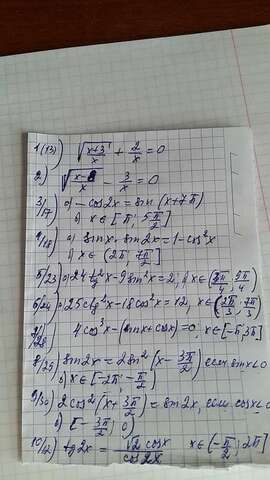 1(13) √(x+3)/x + 2/x = 0
2) √(x-8)/x - 3/x = 0
3/17) а) -cos2x = sin(x+7π)
б) x∈[π; 5π/2]
4/18) а) sinx·sin2x = 1-cos²x
б) x∈(2π; 7π/2]
5/23) а) 24tg²x-9sin²x=2, б) x∈(3π/4; 5π/4)
6/24) а) 25ctg²x-18cos²x=12, б) x∈(2π/3; 7π/3)
7/28) 4cos³x-(sinx+cosx)=0, x∈[-5; 3π]
8/25) sin2x=2sin²(x-3π/2) если sinx<0
б) x∈[-2π; -π/2)
9/30) 2cos²(x+3π/2)=sin2x, если cosx<0
б) [-3π/2; 0)
10/12) tg2x = √2 cosx / cos2x x∈(-π/2; 2π]